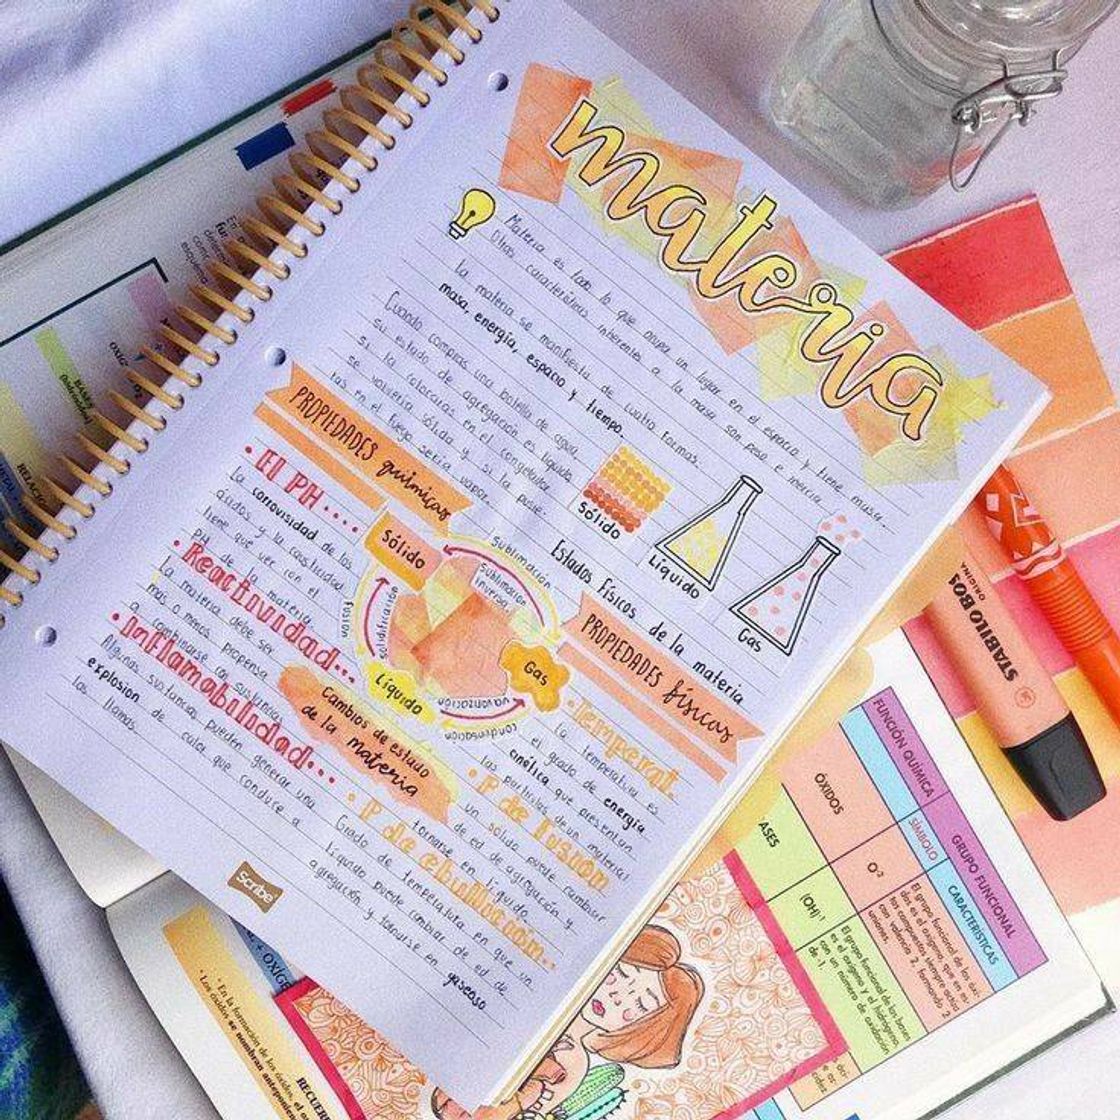 materia
Materia es todo lo que ocupa un lugar en el espacio y tiene masa.
Otras características inherentes a la masa son peso e inercia.
La materia se manifiesta de cuatro formas:
masa, energía, espacio y tiempo.
Cuando compras una botella de agua
su estado de agregación es líquido,
si la colocaras en el congelador
se volvería sólida y si la pusie-
ras en el fuego sería vapor.
Sólido
Líquido
Gas
Estados físicos de la materia
PROPIEDADES químicas
• El PH....
La corrovisidad de los
ácidos y la causticidad
tiene que ver con el
PH de la materia.
• Reactividad...
La materia debe ser
más o menos propensa
a combinarse con sustancias
• Inflamabilidad...
Algunas sustancias pueden generar una
explosion de calor que conduce a
las llamas
Sólido
Sublimación
Sublimación
inversa
Fusión
Solidificación
Gas
Líquido
Vaporización
Condensación
Cambios de estado
de la materia
PROPIEDADES físicas
• Temperat.
La temperatura es
el grado de energía
cinética que presentan
las partículas de un material
• P de fusión
un solido puede cambiar
de ed de agregación y
tornarse en líquido.
• P de ebullicion..
Grado de temperatura en que un
líquido puede cambiar de ed de
agregación y tornarse en gaseoso
Scribe
STABILO BOSS
ORIGINA
FUNCIÓN QUÍMICA
GRUPO FUNCIONAL
SÍMBOLO
CARACTERÍSTICAS
ÓXIDOS
O-2
El grupo funcional de los óxi-
dos es el oxígeno, que en es-
tos compuestos siempre actúa
con valencia 2, formando 2
uniones.
ASES
(OH)-1
El grupo funcional de las bases
es el oxígeno y el hidrógeno,
con un número de oxidación
de -1.
RELACIO
+ OXÍGE
• En la formación de los óxidos, el
Los óxidos se nombran anteponien
RECUER